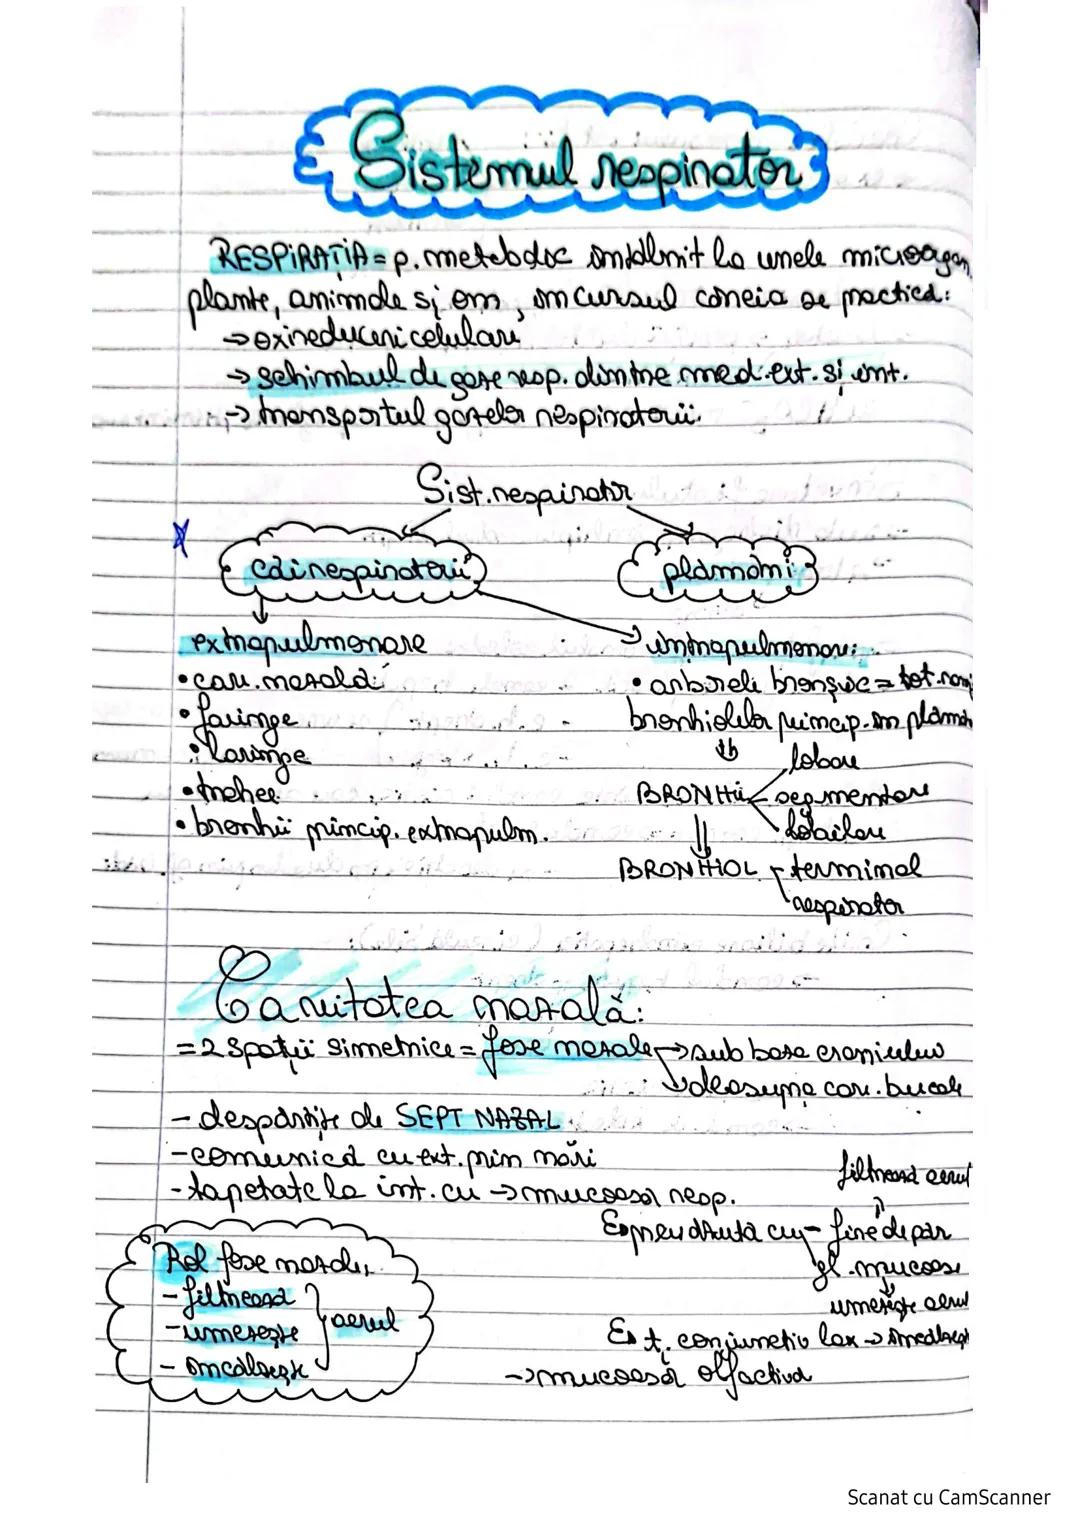 Sistemul respirator
RESPIRAȚIA = p. metabolic întâlnit la unele microorgan
plante, animale și om, în cursul căreia se practică:
→ oxireduceri celulari
→ schimbul de gaze resp. dintre med. ext. și int.
→ transportul gazelor respiratorii.
Sist. respirator
căi respiratorii plămâni
extrapulmonare → intrapulmonar:
• cav. nazală • arborele bronșic = tot. ram
• faringe bronhiolelor princip. în plămân
• laringe lobare
• trahee BRONHII segmentare
• bronhii princip. extrapulm. lobulare
BRONHIOL terminal
respirator
Cavitatea nazală:
= 2 spații simetrice = fose nazale → sub baza craniului
→ deasupra cav. bucale
- despărțite de SEPT NAZAL
- comunică cu ext. prin nări
- tapetate la int. cu → mucoasă resp.
filtrează aerul
E prevăzută cu - fire de păr
gl. mucoase
umezește aerul
E t. conjunctiv lax →
→ mucoasă olfactivă
Rol fose nazale,
- filtrează
- umezește aerul
- încălzește
Scanat cu CamScanner